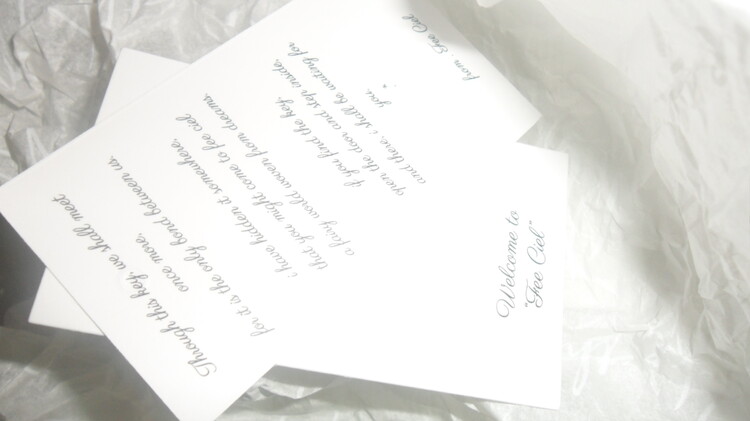 Through this key, we shall meet
once more,
for it is the only bond between us.
i have hidden it somewhere,
that you might come to fee ciel
a fairy world woven from dreams.
if you find the key,
open the door and step inside,
and there, i shall be waiting for
you.
from. Fee Ciel
Welcome to
"Fee Ciel"